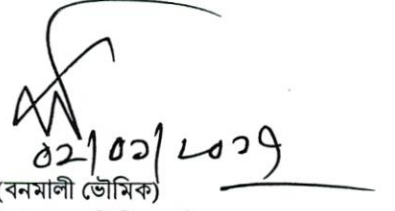 ০২/০১/২০১৭
(বনমালী ভৌমিক)